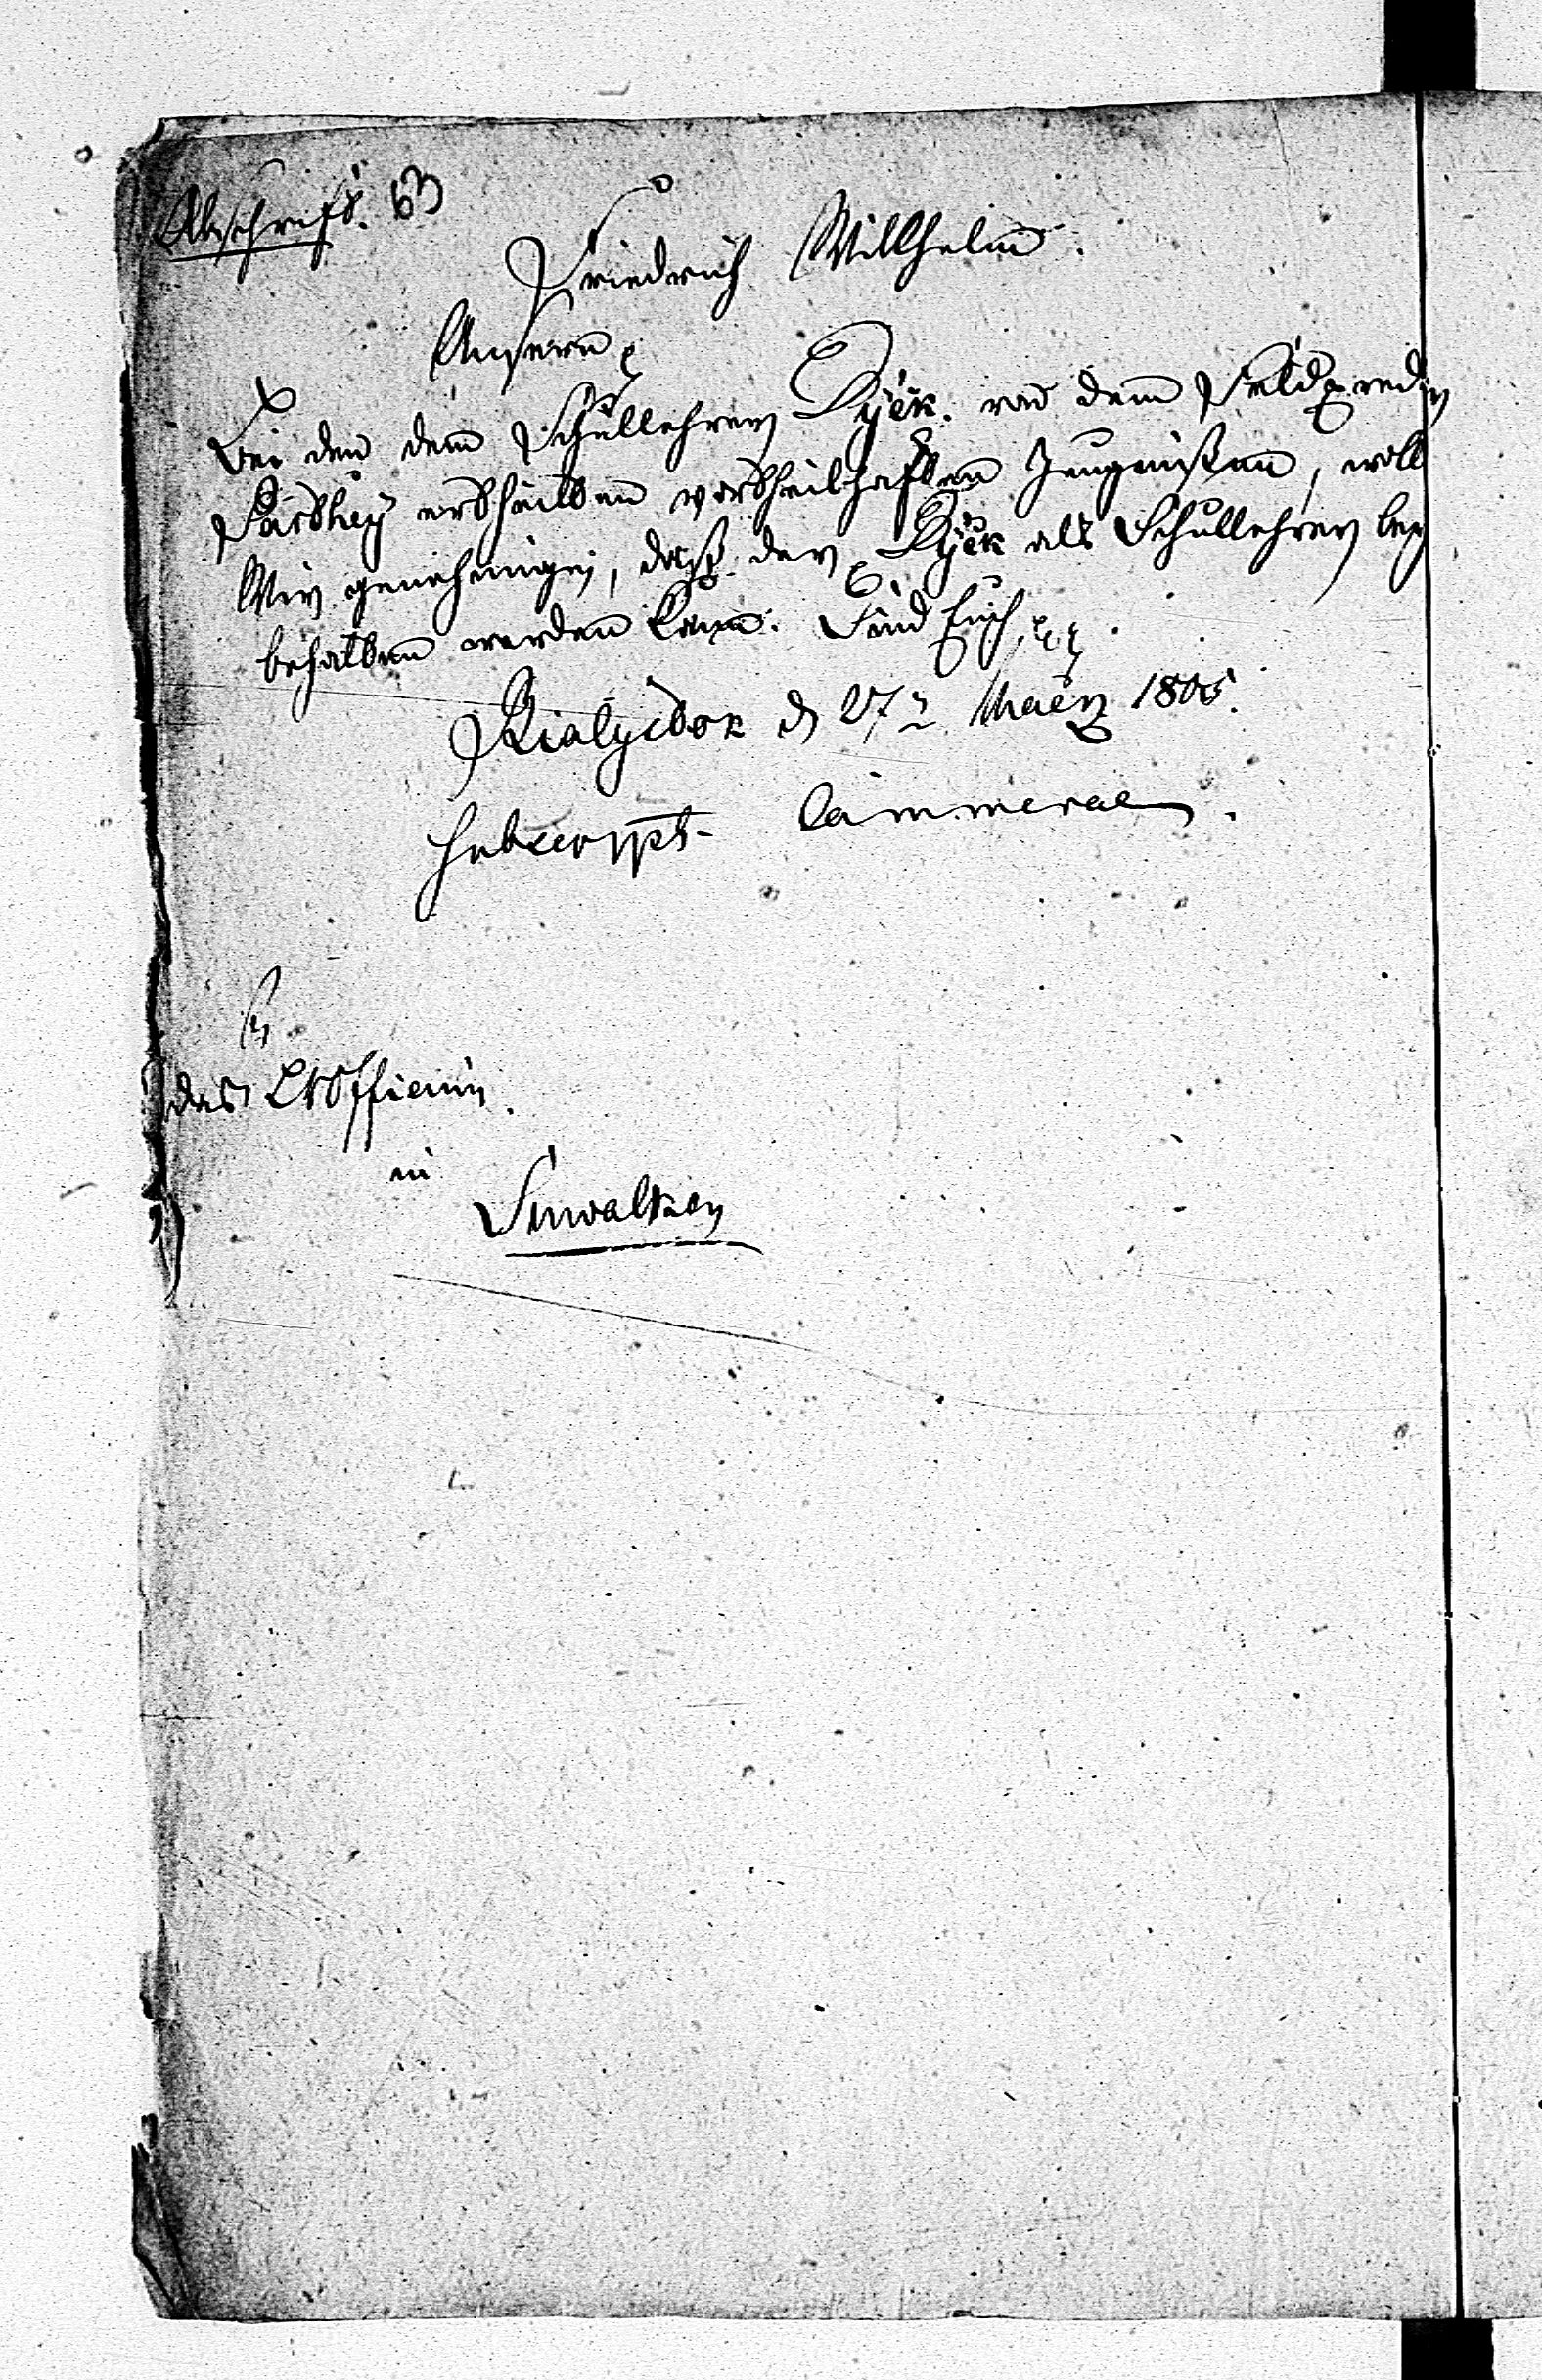 Abschrift. 63
Friedrich Willhelm.
Unsern
Bei den dem Schullehrer Dyck. von dem Feldpredig
ertheilten vortheilhaften Zeugnißen, woll
Wir genehmigen, daß der Dyck als Schullehrer bey
behalten werden kann. Sind Euch
Bialystok d 27ᵗ Maerz 1805.
Subscript. Cammerae.
An
das Officium
in
Suwalken